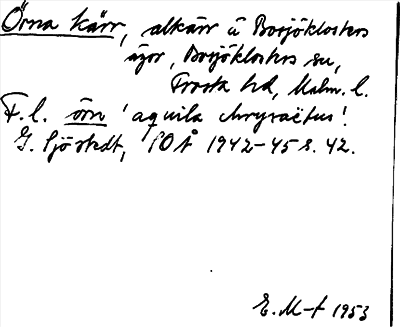 Örna kärr, alkärr å Bosjöklosters
ägor, Bosjöklosters sn,
Frosta hd, Malm. l.
F. l. örn 'aquila chrysaëtus'.
G. Sjöstedt, SOÅ 1942-45 s. 42.
E. M-t 1953